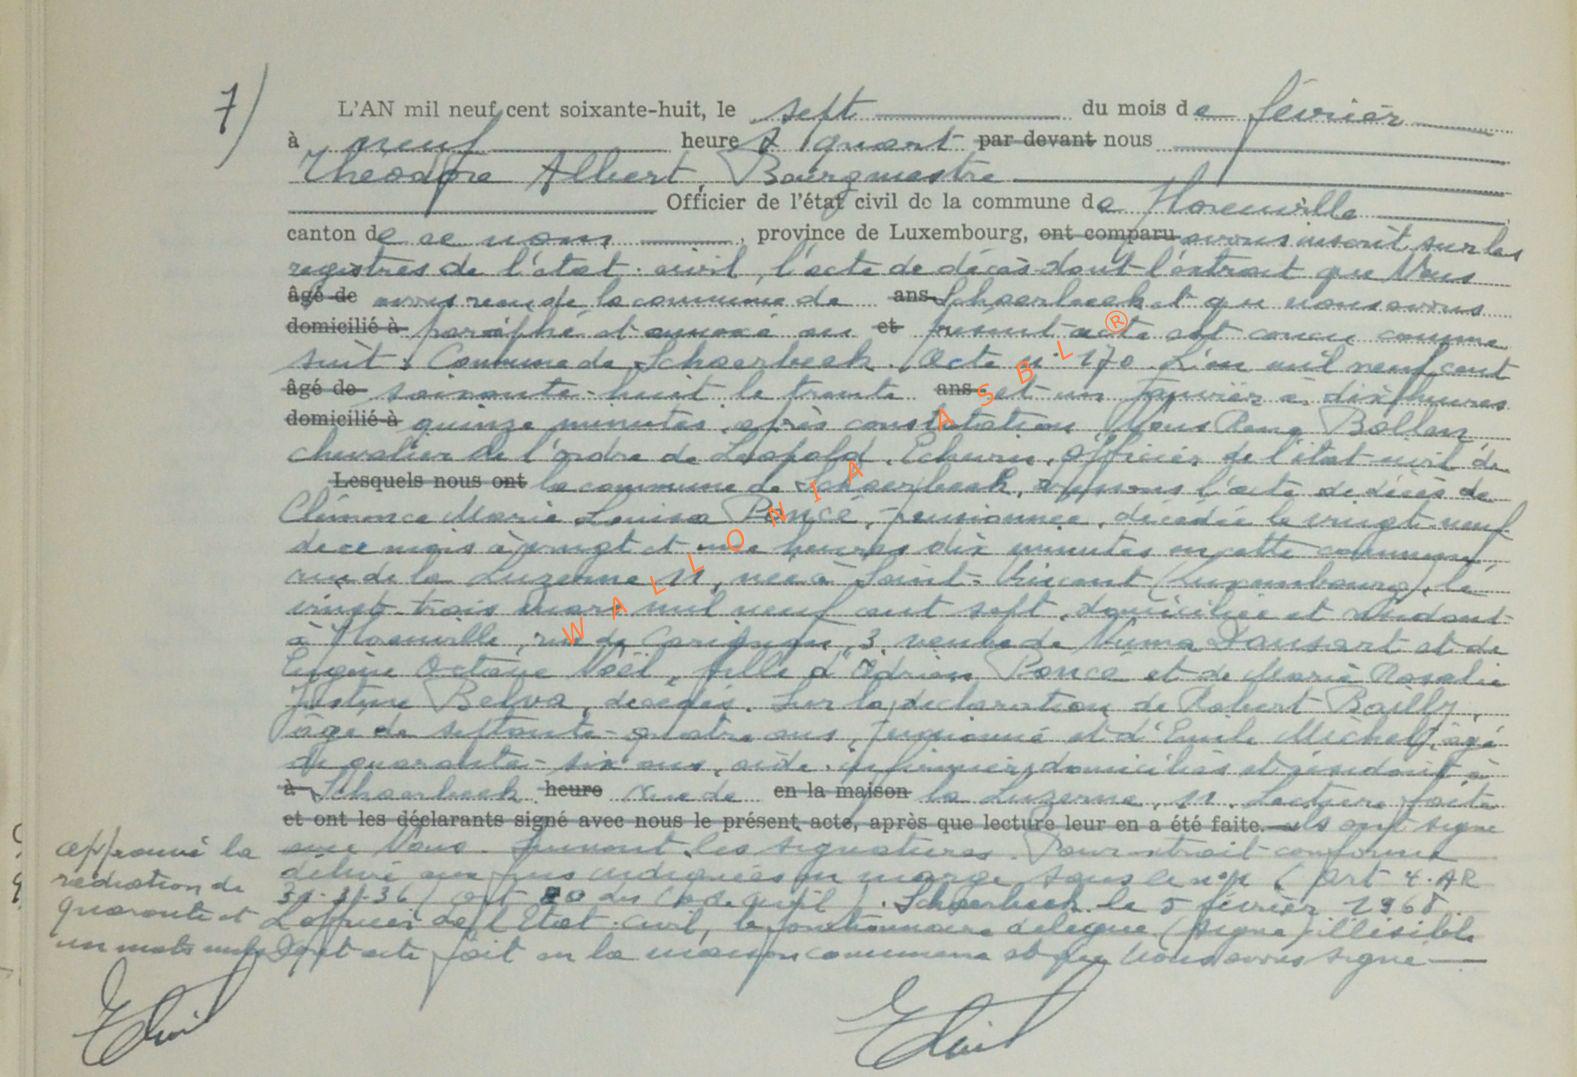 7)
L'AN mil neuf cent soixante-huit, le sept du mois de février
à neuf heure & quart par devant nous
Théodore Albert, Bourgmestre
Officier de l'état civil de la commune de Florenville
canton de ce nom, province de Luxembourg, ont comparu avons inscrit sur les
registres de l'état-civil, l'acte de décès dont l'extrait que Nous
âgé de avons reçu de la commune de ans Schaerbeek et que nous avons
domicilié à paraphé et annexé au et présent acte est conçu comme
suit : Commune de Schaerbeek. Acte n° 170 L'an mil neuf cent
âgé de soixante-huit le trente ans et un janvier à dix heures
domicilié à quinze minutes, après constatation Nous René Bollen
chevalier de l'ordre de Léopold. Echevin, Officier de l'état-civil de
Lesquels nous ont la commune de Schaerbeek, dressons l'acte de décès de
Clémence Marie Louisa Poncé, pensionnée, décédée le vingt-neuf
de ce mois à vingt et une heures dix minutes en cette commune
rue de la Luzerne 11, née à Saint-Vincent (Luxembourg), le
vingt-trois mars mil neuf cent sept, domiciliée et résidant
à Florenville, rue de Carignan, 3, veuve de Numa Dausart et de
Eugène Octave Noël, fille d'Adrien Poncé et de Marie Rosalie
Justine Belva, décédés. Sur la déclaration de Robert Bailly,
âgé de septante-quatre ans, pensionné et d'Emile Michel, âgé
de quarante-six ans, aide-infirmier, domiciliés et résidant à
à Schaerbeek heure rue de en la maison la Luzerne, 11. Lecture faite
et ont les déclarants signé avec nous le présent acte, après que lecture leur en a été faite. ils ont signé
avec Nous suivent les signatures. Pour extrait conforme
délivré aux fins indiquées en marge sous le n° 11 (art 4. AR
art 80 du Code civil). Schaerbeek le 5 février 1968.
L'officier de l'Etat-civil, le fonctionnaire délégué (signé) illisible
Dont acte fait en la maison communale et que Nous avons signé
approuvé la
radiation de
quarante et
un mots nuls
WALLONIA ASBL ®